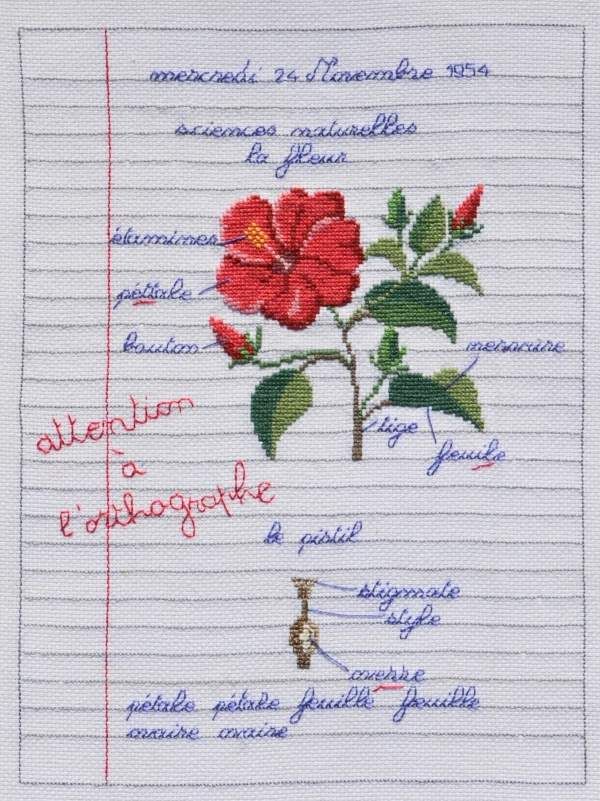 mercredi 24 Novembre 1954
sciences naturelles
la fleur
étamines
péttale
bouton
nervure
tige
feuile
attention
à
l'orthographe
le pistil
stigmate
style
pétale pétale feuille feuille
ovaire ovaire